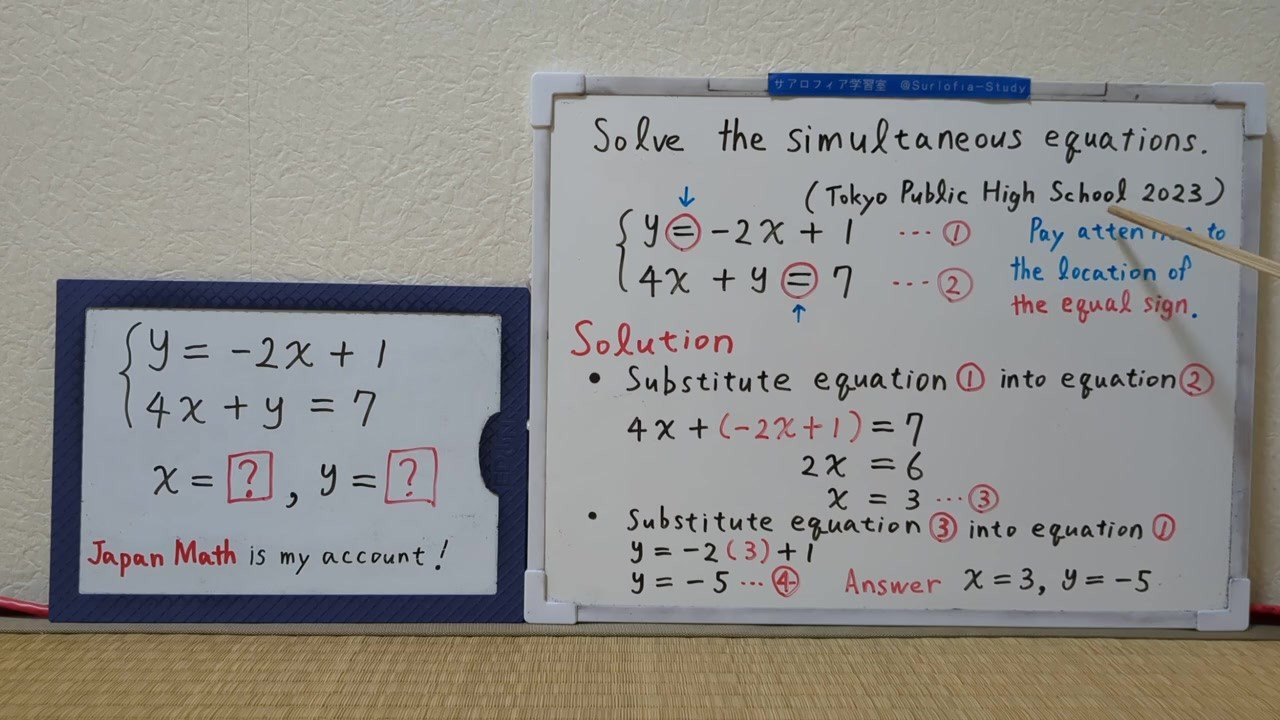 y = -2x + 1
4x + y = 7
x = ?, y = ?
Japan Math is my account!
サアロフィア学習室 @Surlofia-Study
Solve the simultaneous equations.
(Tokyo Public High School 2023)
y = -2x + 1 ... ①
4x + y = 7 ... ②
Pay to
the location of
the equal sign.
Solution
• Substitute equation ① into equation ②
4x + (-2x+1) = 7
2x = 6
x = 3 ... ③
• Substitute equation ③ into equation ①
y = -2(3)+1
y = -5 ... ④
Answer x = 3, y = -5